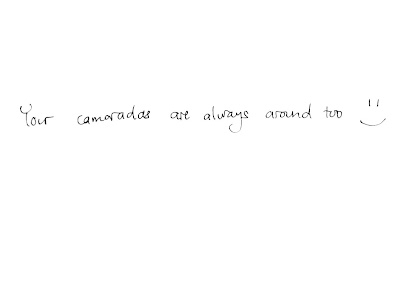 Your camaradas are always around too